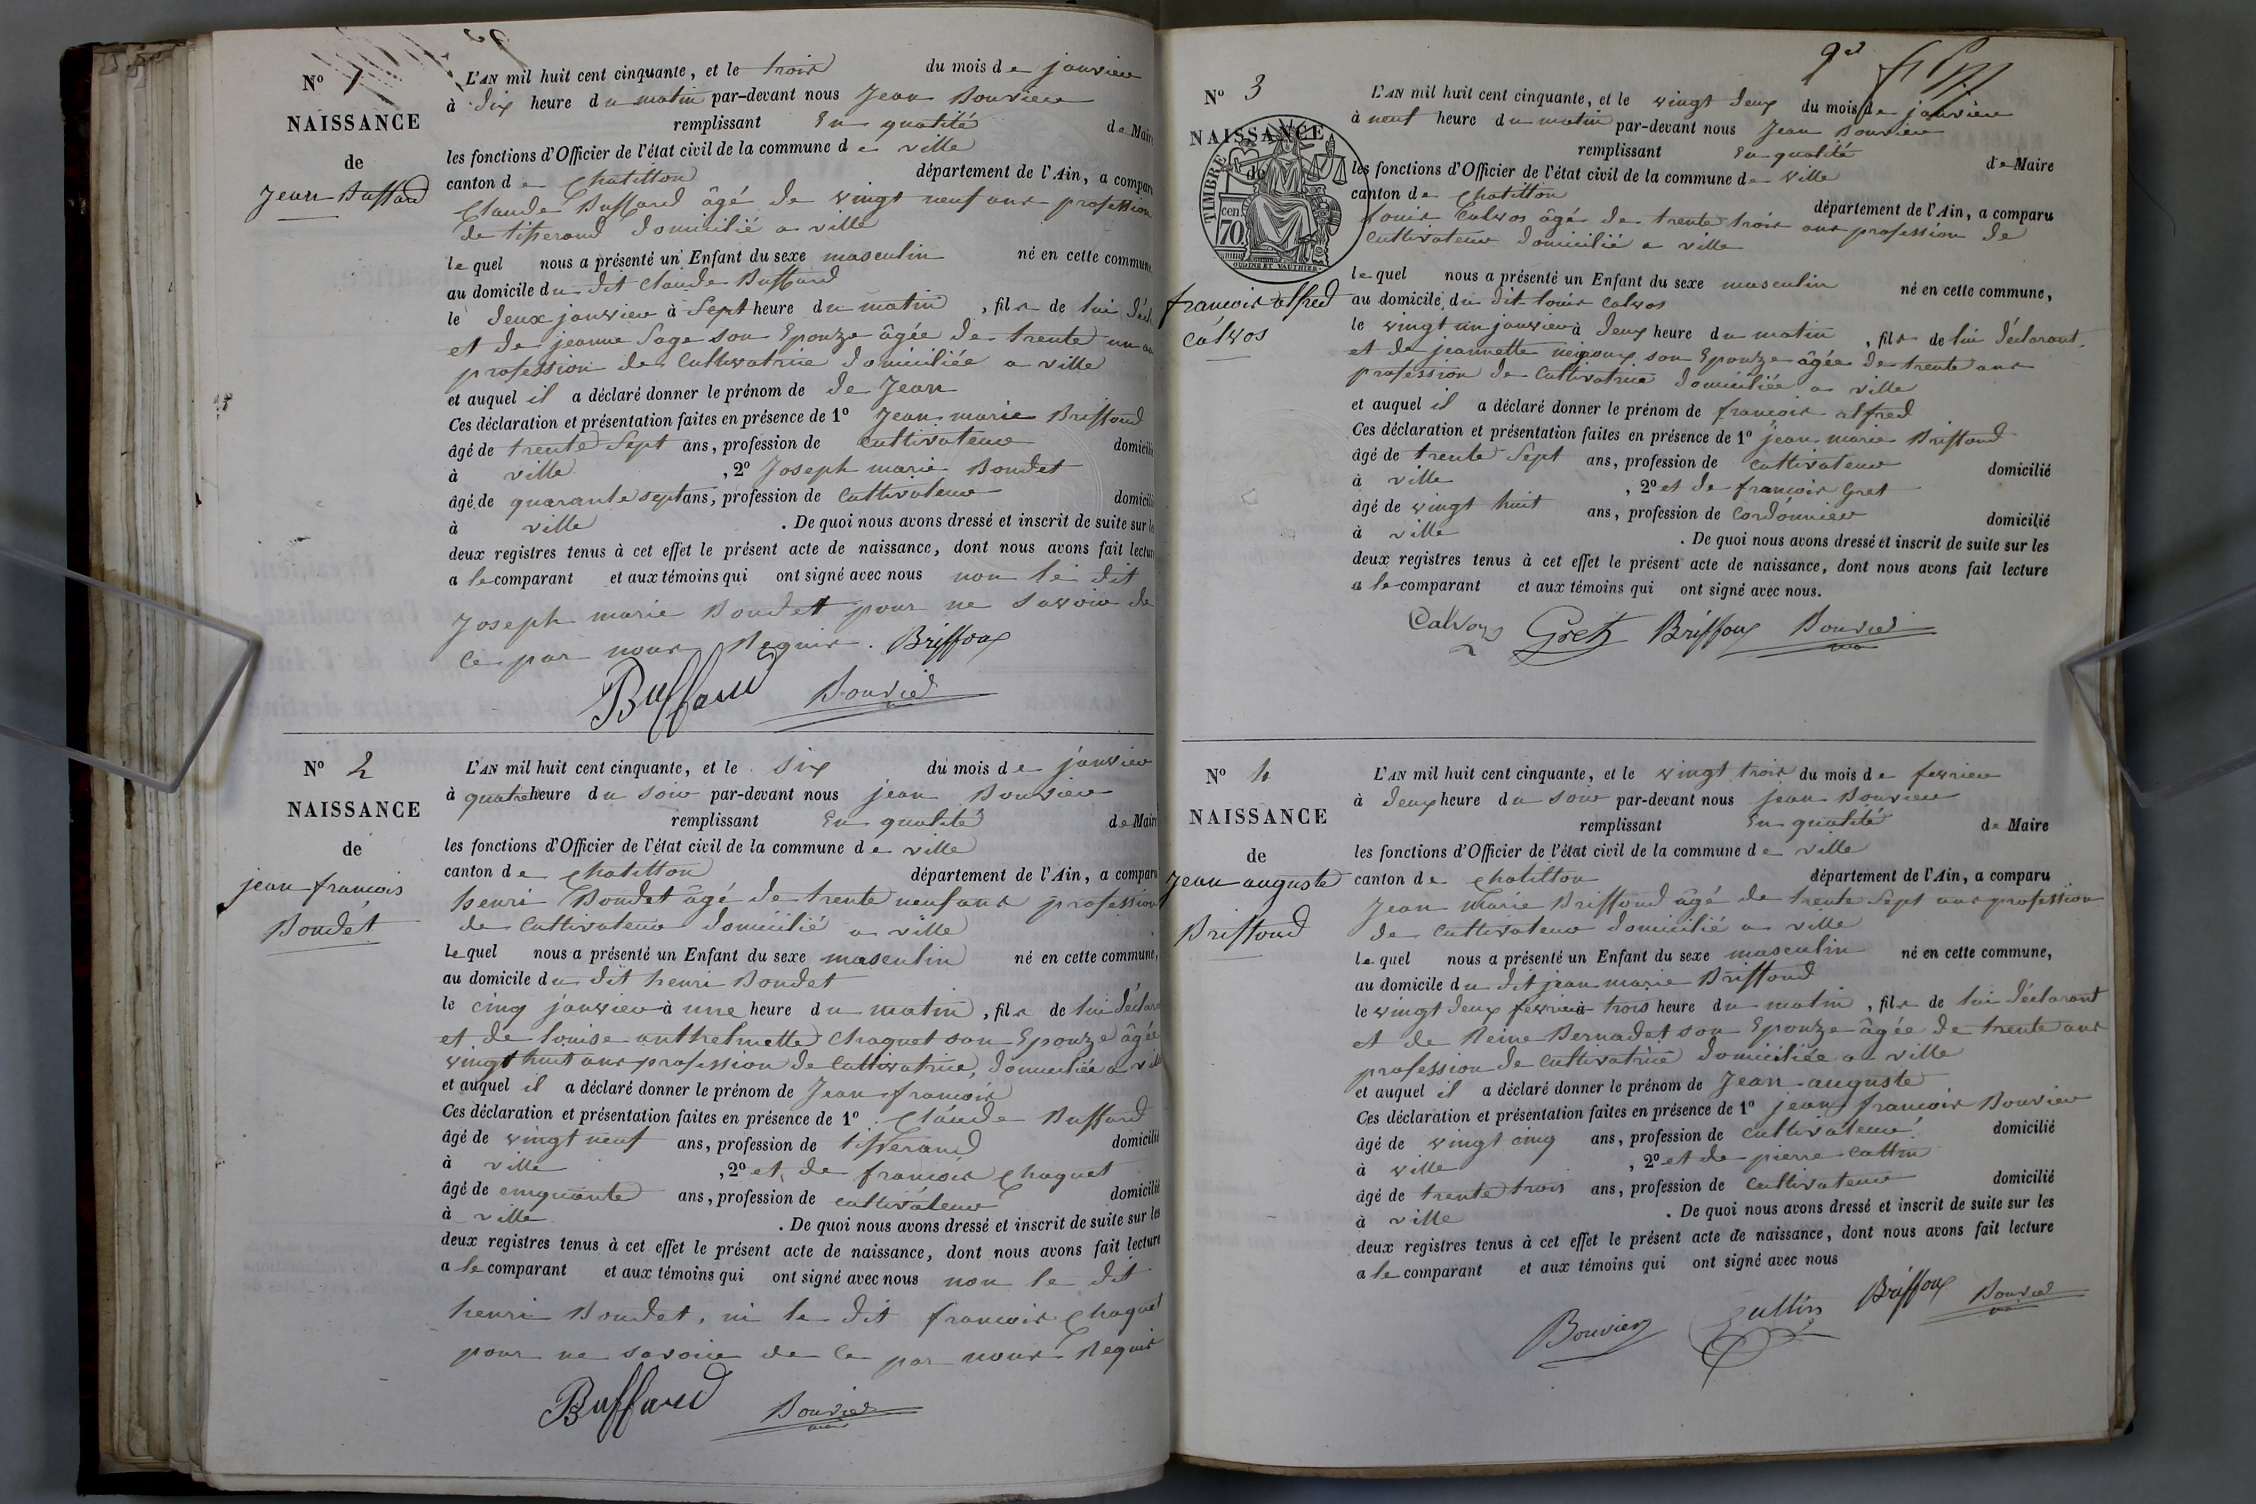 N° 1
NAISSANCE
de
Jean Buffard
L'AN mil huit cent cinquante, et le trois du mois de janvier
à dix heure du matin par-devant nous Jean Bouvier
remplissant En qualité de Maire
les fonctions d'Officier de l'état civil de la commune de ville
canton de Chatillon département de l'Ain, a comparu
Claude Buffard âgé de vingt neuf ans profession
de tisserand domicilié a ville
lequel nous a présenté un Enfant du sexe masculin né en cette commune
au domicile du dit Claude Buffard
le deux janvier à Sept heure du matin, fils de lui décl
et de jeanne Sage son Epouze âgée de trente un an
profession de Cultivatrice domiciliée a ville
et auquel il a déclaré donner le prénom de de Jean
Ces déclaration et présentation faites en présence de 1° Jean marie Briffoud
âgé de trente Sept ans, profession de cultivateur domicilié
à ville, 2° Joseph marie Boudet
âgé de quarante sept ans, profession de Cultivateur domicilié
à ville. De quoi nous avons dressé et inscrit de suite sur le
deux registres tenus à cet effet le présent acte de naissance, dont nous avons fait lecture
a le comparant et aux témoins qui ont signé avec nous non le dit
Joseph marie Boudet pour ne savoir de
ce par nous Requis. Briffoux
Buffard Bouvier
N° 2
NAISSANCE
de
jean francois
Boudet
L'AN mil huit cent cinquante, et le six du mois de janvier
à quatre heure du soir par-devant nous jean Bouvier
remplissant En qualité de Maire
les fonctions d'Officier de l'état civil de la commune de ville
canton de Chatillon département de l'Ain, a comparu
henri Boudet âgé de trente neuf ans profession
de Cultivateur domicilié a ville
lequel nous a présenté un Enfant du sexe masculin né en cette commune,
au domicile du dit henri Boudet
le cinq janvier à une heure du matin, fils de lui déclar
et de louise anthelmette Chaquet son Epouze âgée
vingt huit ans profession de Cultivatrice, domiciliée a ville
et auquel il a déclaré donner le prénom de Jean francois
Ces déclaration et présentation faites en présence de 1° Claude Buffard
âgé de vingt neuf ans, profession de tisserand domicilié
à ville, 2° et de francois Chaquet
âgé de cinquante ans, profession de cultivateur domicilié
à ville. De quoi nous avons dressé et inscrit de suite sur les
deux registres tenus à cet effet le présent acte de naissance, dont nous avons fait lecture
a le comparant et aux témoins qui ont signé avec nous non le dit
henri Boudet, ni le dit francois Chaquet
pour ne savoir de ce par nous Requis
Buffard Bouvier
N° 3
NAISSANCE
de
TIMBRE
cen.
70.
OUDINE ET VAUTHIER
francois alfred
Calvos
L'AN mil huit cent cinquante, et le vingt deux du mois de janvier
à neuf heure du matin par-devant nous Jean Bouvier
remplissant En qualité de Maire
les fonctions d'Officier de l'état civil de la commune de Ville
canton de Chatillon département de l'Ain, a comparu
louis Calvos âgé de trente trois ans profession de
cultivateur domicilié a ville
lequel nous a présenté un Enfant du sexe masculin né en cette commune,
au domicile du dit louis Calvos
le vingt un janvier à deux heure du matin, fils de lui déclarant
et de jeannette son Epouze âgée de trente ans
profession de Cultivatrice domiciliée a ville
et auquel il a déclaré donner le prénom de francois alfred
Ces déclaration et présentation faites en présence de 1° jean marie Briffoud
âgé de trente Sept ans, profession de Cultivateur domicilié
à ville, 2° et de francois Gret
âgé de vingt huit ans, profession de Cordonnier domicilié
à ville. De quoi nous avons dressé et inscrit de suite sur les
deux registres tenus à cet effet le présent acte de naissance, dont nous avons fait lecture
a le comparant et aux témoins qui ont signé avec nous.
Calvoz Gretz Briffoux Bouvier
N° 4
NAISSANCE
de
Jean auguste
Briffoud
L'AN mil huit cent cinquante, et le vingt trois du mois de fevrier
à deux heure du soir par-devant nous jean Bouvier
remplissant En qualité de Maire
les fonctions d'Officier de l'état civil de la commune de ville
canton de Chatillon département de l'Ain, a comparu
Jean Marie Briffoud âgé de trente Sept ans profession
de Cultivateur domicilié a ville
lequel nous a présenté un Enfant du sexe masculin né en cette commune,
au domicile du dit jean marie Briffoud
le vingt deux fevrier à trois heure du matin, fils de lui déclarant
et de Reine Bernadet son Epouze âgée de trente ans
profession de Cultivatrice domiciliée a ville
et auquel il a déclaré donner le prénom de Jean auguste
Ces déclaration et présentation faites en présence de 1° jean francois Bouvier
âgé de vingt cinq ans, profession de cultivateur domicilié
à ville, 2° et de pierre Cattin
âgé de trente trois ans, profession de Cultivateur domicilié
à ville. De quoi nous avons dressé et inscrit de suite sur les
deux registres tenus à cet effet le présent acte de naissance, dont nous avons fait lecture
a le comparant et aux témoins qui ont signé avec nous
Bouvier Briffoux Bouvier